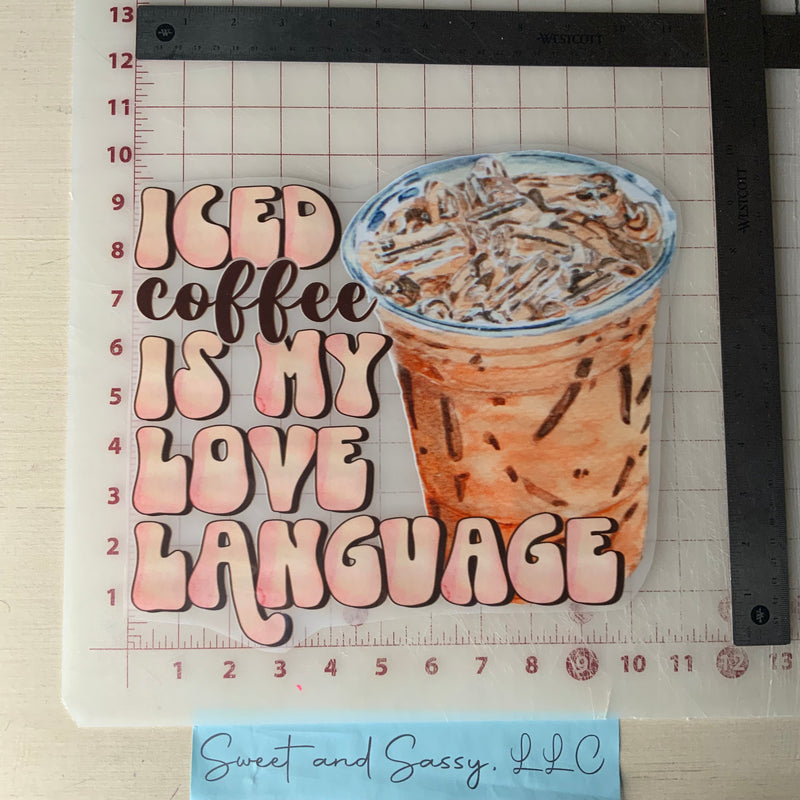 13
1 2 3 4 5 WESTCOTT 11
12
11
10
9
8
7
6
5
4
3
2
1
ICED
coffee
IS MY
LOVE
LANGUAGE
WESTCOTT
1 2 3 4 5 6 7 8 9 10 11 12 13
Sweet and Sassy, LLC